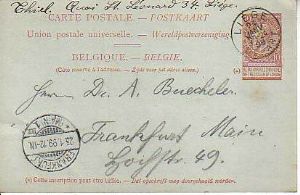 Thiel, Quai St. Léonard 34. Liège.
CARTE POSTALE — POSTKAART
Union postale universelle. — Wereldpostvereeniging
BELGIQUE. — BELGIE.
(Côté réservé à l'adresse. — Zijde voor het adres alleen.)
Herrn Dr. A. Buecheler.
Frankfurt Main
49.
FRANKFURT
MAIN
25.1.99.12-1N
(*) Cette inscription peut être biffée. — Dit opschrift mag doorschrapt worden.